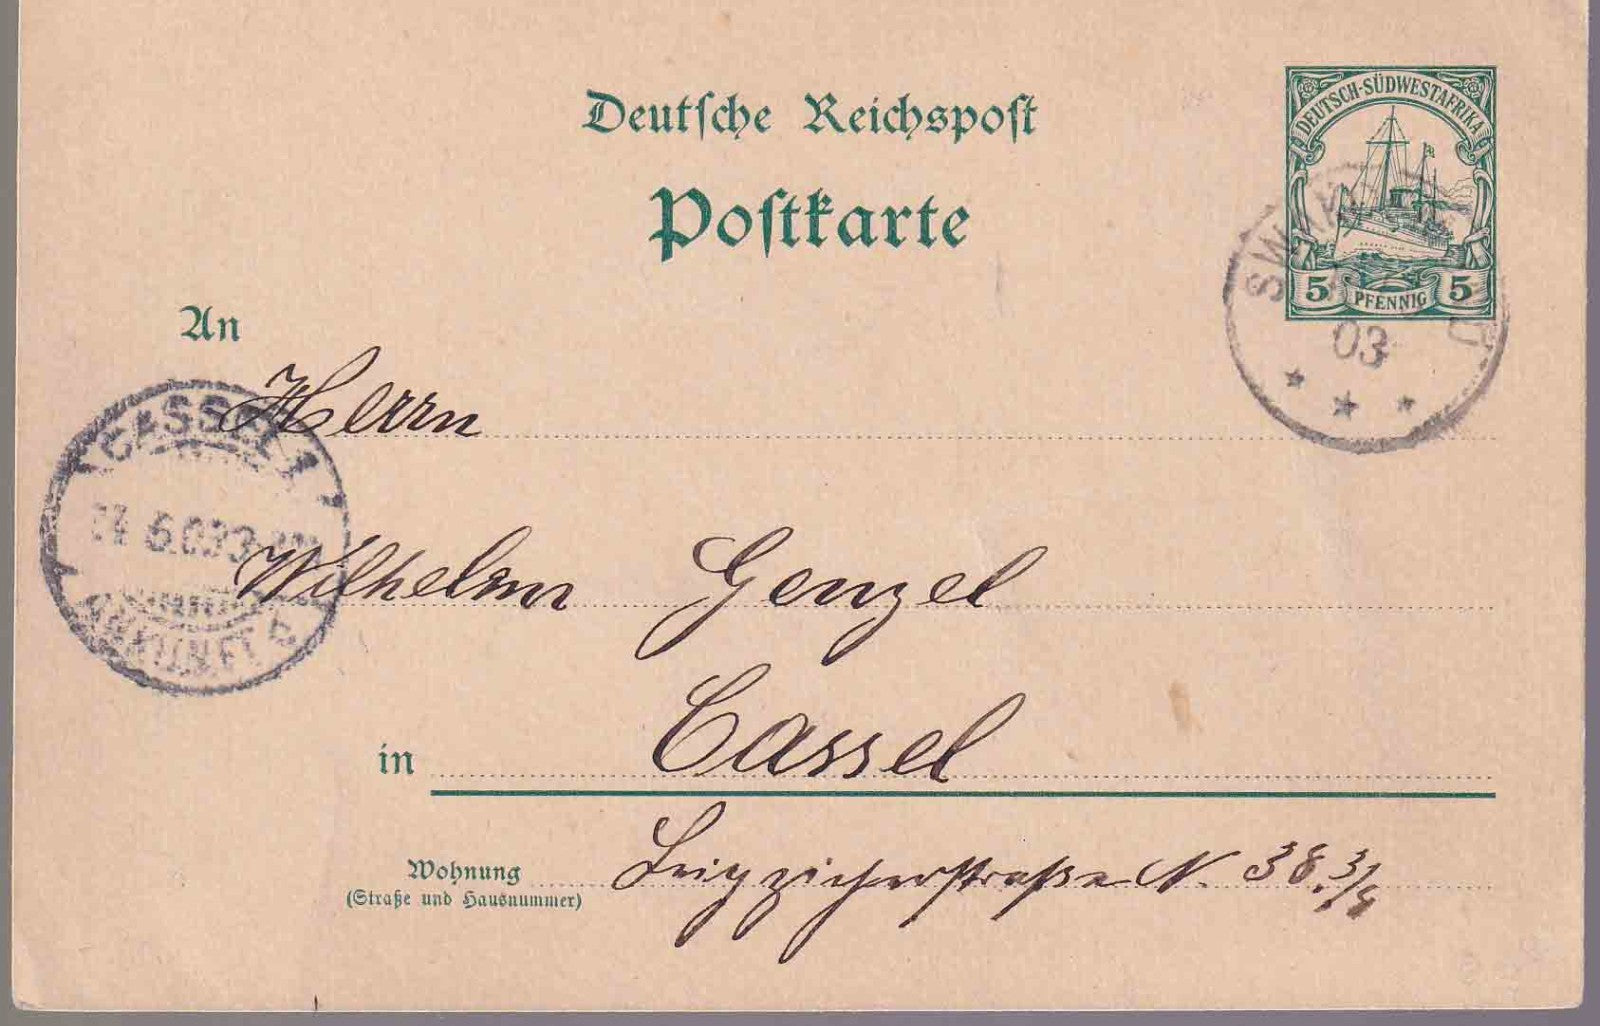 Deutsche Reichspost
Postkarte
DEUTSCH-SÜDWESTAFRIKA
5 PFENNIG 5
03
An
Herrn
CASSEL
Wilhelm Genzel
in Cassel
Wohnung
(Straße und Hausnummer)
Leipzigerstraße N. 38.